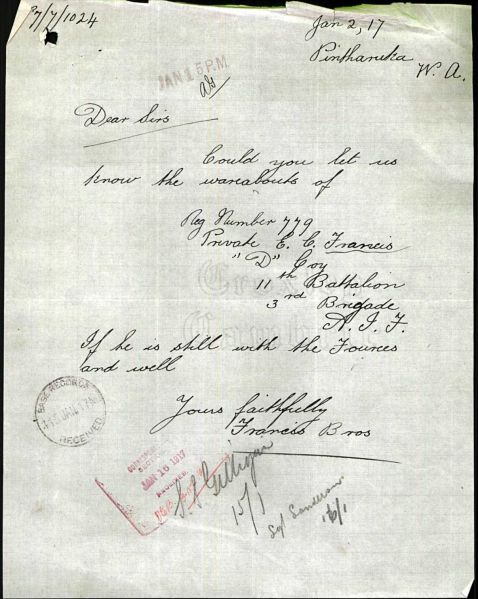 7/7/1024
Jan 2, 17
Pintharuka
W. A.
JAN 15 PM
Dear Sirs
Could you let us
know the wareabouts of
Reg Number 779
Private E. C. Francis
"D" Coy
11th Battalion
3rd Brigade
A. I. F.
If he is still with the Fources
and well
Yours faithfully
Francis Bros
BASE RECORDS
RECEIVED
JAN 16 1917
15/1
Sgt Sanderson
16/1